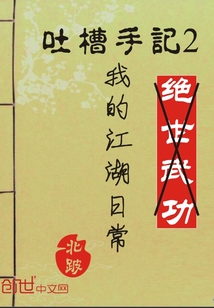 吐槽手記2
我的江湖日常
绝世武功
北跛
创世中文网